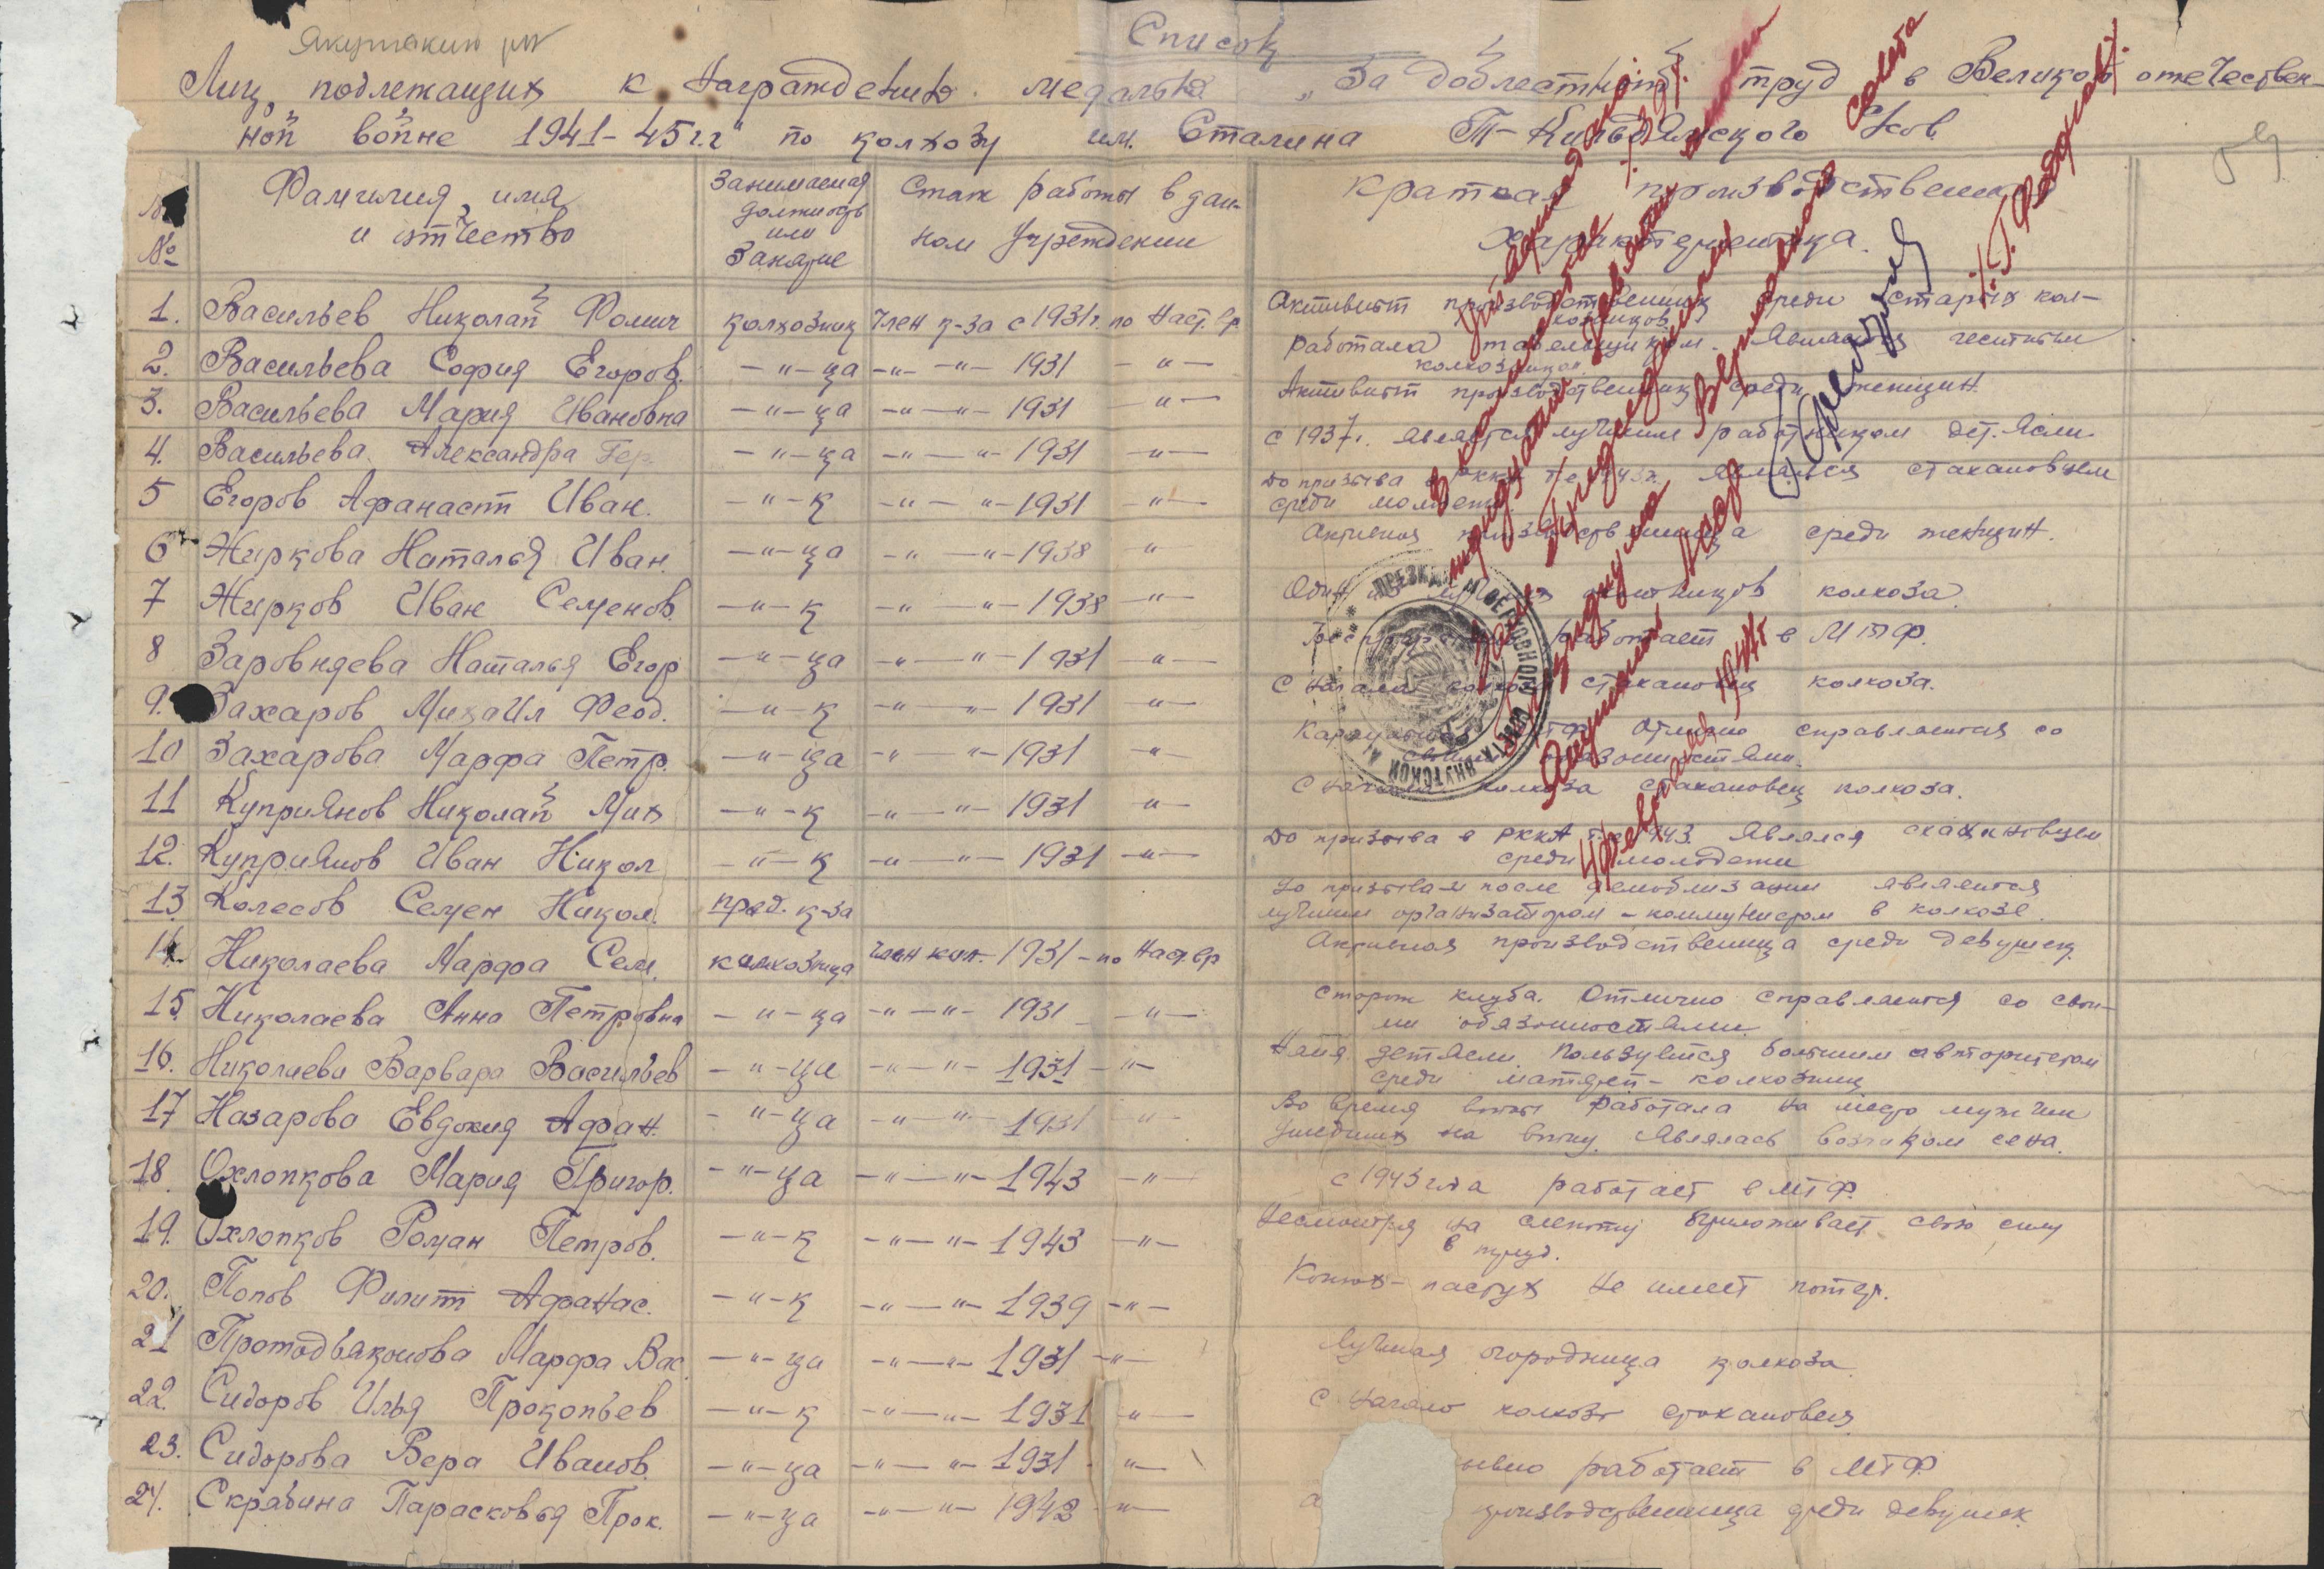 Якутский р-н
Список
Лиц, подлежащих к награждению медалью „За доблестный труд в Великой отечествен-
ной войне 1941-45 г.г" по колхозу им. Сталина Т-Кильдямского Нсов.
№ №
Фамилия, имя и отчество
Занимаемая должность или занятие
Стаж работы в данном учреждении
Краткая производственная характеристика.
1. Васильев Николай Фомич колхозник член к-за с 1931г. по наст. вр. Активист производственник среди старых кол-
хозников.
2. Васильева София Егоров. -"-ца -"- -"- 1931 -"- Работала табельщиком. Является честным
колхозником.
3. Васильева Мария Ивановна -"-ца -"- -"- 1931 -"- Активист производственник среди женщин.
4. Васильева Александра Гер. -"-ца -"- -"- 1931 -"- с 1937г. является лучшим работником дет. ясли.
5 Егоров Афанасий Иван. -"-к -"- -"- 1931 -"- До призыва в РККА т.е 1943г. являлся стахановцем
среди молодежи.
6 Жиркова Наталья Иван. -"-ца -"- -"- 1938 -"- Активная производственница среди женщин.
7 Жирков Иван Семенов. -"-к -"- -"- 1938 -"- Один из лучших колхоза.
8 Заровняева Наталья Егор -"-ца -"- -"- 1931 -"- работает в МТФ.
9. Захаров Михаил Феод. -"-к -"- -"- 1931 -"- С начала колхоза стахановец колхоза.
10 Захарова Марфа Петр. -"-ца -"- -"- 1931 -"- МТФ. Отлично справляется со
своими обязанностями.
11 Куприянов Николай Мих -"-к -"- -"- 1931 -"- С начала колхоза стахановец колхоза.
12. Куприянов Иван Никол -"-к -"- -"- 1931 -"- До призыва в РККА т.е 1943 являлся стахановцем
среди молодежи
13. Колесов Семен Никол. пред. к-за До призыва и после демоблизации является
лучшим организатором - коммунистом в колхозе.
14. Николаева Марфа Сем. колхозница член кол. 1931 - по наст. вр Активная производственница среди девушек.
15. Николаева Анна Петровна -"-ца -"- -"- 1931 -"- Сторож клуба. Отлично справляется со свои-
ми обязанностями
16. Николаева Варвара Васильев -"-ца -"- -"- 1931 -"- Няня детясли. Пользуется большим авторитетом
среди матерей - колхозниц
17 Назарова Евдокия Афан. -"-ца -"- -"- 1931 -"- Во время войны работала на место мужчин
ушедших на войну. Являлась возчиком сена.
18. Охлопкова Мария Григор. -"-ца -"- -"- 1943 -"- с 1943 года работает в МТФ.
19. Охлопков Роман Петров. -"-к -"- -"- 1943 -"- Несмотря на слепоту вкладывает свою силу
в труд.
20. Попов Филипп Афанас. -"-к -"- -"- 1939 -"- Конюх-пастух не имеет потер.
21 Протодьяконова Марфа Вас -"-ца -"- -"- 1931 -"- Лучшая огородница колхоза.
22. Сидоров Илья Прокопьев -"-к -"- -"- 1931 -"- С начало колхоза стахановец
23. Сидорова Вера Иванов. -"-ца -"- -"- 1931 -"- ивно работает в МТФ
24. Скрябина Парасковья Прок. -"-ца -"- -"- 1942 -"- а производственница среди девушек.
Верховного Совета
4 февраля 1947г